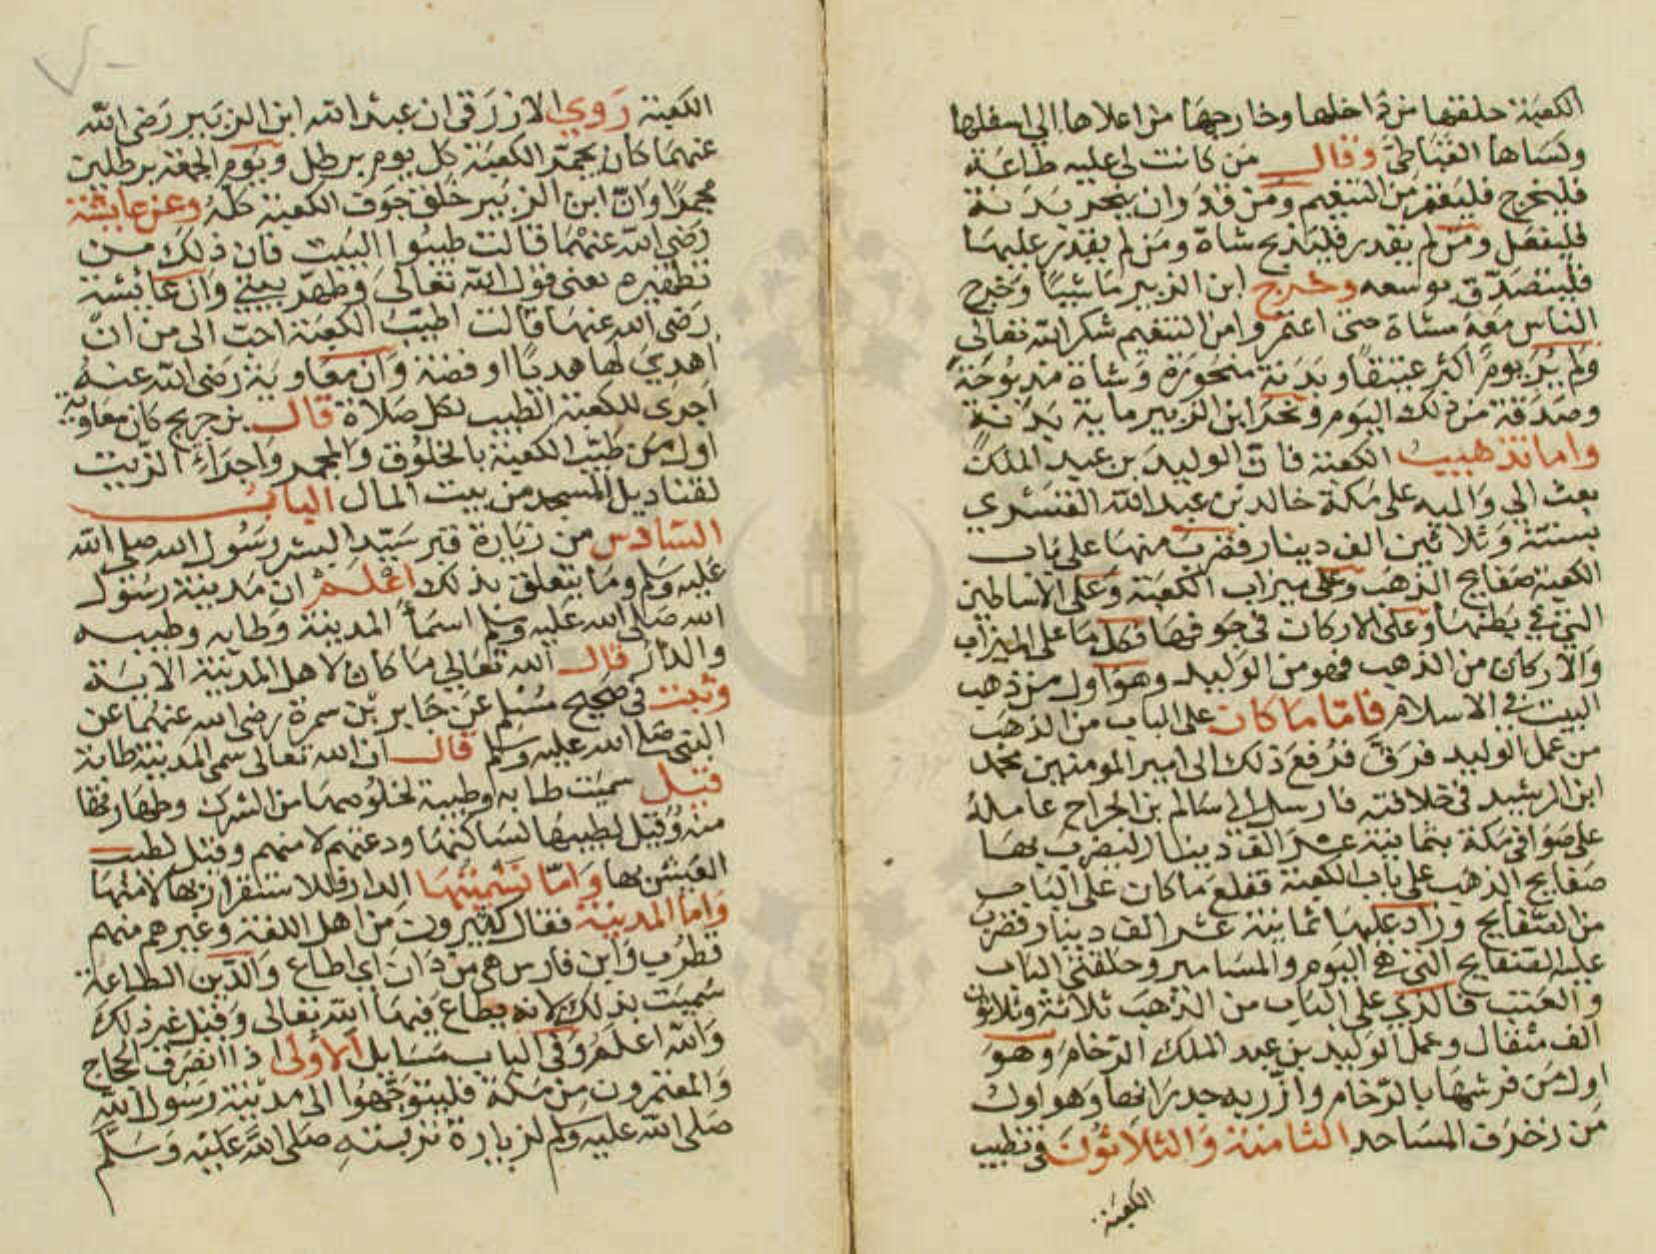 الكعبة خلقها من داخلها وخارجها من اعلاها الي اسفلها
وكساها القباطي وقال من كانت لي عليه طاعة
فليخرج فليعتمر من التنعيم ومن قدر ان ينحر بدنة
فليفعل ومن لم يقدر فليذبح شاة ومن لم يقدر عليها
فليتصدق بوسعه وخرج ابن الزبير ماشيا وخرج
الناس معه مشاة حتى اعتمروا من التنعيم شكر الله تعالى
ولم ير يوم اكثر عتيقا وبدنة منحورة وشاة مذبوحة
وصدقة من ذلك اليوم ونحر ابن الزبير ماية بدنة
واما تذهيب الكعبة فان الوليد بن عبد الملك
بعث الي واليه على مكة خالد بن عبد الله القسري
بستة وثلاثين الف دينار فضرب منها على باب
الكعبة صفايح الذهب وعلى ميزاب الكعبة وعلى الاساطين
التي في بطنها وعلى الاركان في جوفها فكل ما على الميزاب
والاركان من الذهب فهو من الوليد وهو اول من ذهب
البيت في الاسلام فاما ما كان على الباب من الذهب
من عمل الوليد فرق فرفع ذلك الى امير المومنين محمد
ابن الرشيد في خلافته فارسل الى سالم بن الجراح عامله
على صوافي مكة بثمانية عشر الف دينار ليضرب بها
صفايح الذهب على باب الكعبة فقلع ما كان على الباب
من الصفايح وزاد عليها ثمانية عشر الف دينار فضرب
عليه الصفايح التي هي اليوم والمسامير وحلقتي الباب
والعتب فالذي على الباب من الذهب ثلاثة وثلاثون
الف مثقال وعمل الوليد بن عبد الملك الرخام وهو
اول من فرشها بالرخام وازر به جدرانها وهو اول
من زخرف المساجد الثامنة والثلاثون في تطييب
الكعبة
الكعبة روي الازرقي ان عبد الله ابن الزبير رضي الله
عنهما كان يجمر الكعبة كل يوم برطل ويوم الجمعة برطلين
مجمرا وان ابن الزبير خلق جوف الكعبة كله وعن عايشة
رضي الله عنهما قالت طيبوا البيت فان ذلك من
تطهيره يعني قول الله تعالى وطهر بيتي وان عائشة
رضي الله عنها قالت اطيب الكعبة احب الى من ان
اهدي لها هديا او فضة وان معاوية رضي الله عنه
اجرى للكعبة الطيب لكل صلاة قال بن جريج كان معاوية
اول من طيب الكعبة بالخلوق والمجمر واجراء الزيت
لقناديل المسجد من بيت المال الباب
السادس من زيارة قبر سيد البشر رسول الله صلى الله
عليه وسلم وما يتعلق بذلك اعلم ان مدينة رسول
الله صلى الله عليه وسلم اسما المدينة وطابه وطيبه
والدار قال الله تعالي ما كان لاهل المدينة الاية
وثبت في صحيح مسلم عن جابر بن سمرة رضي الله عنهما عن
النبي صلى الله عليه وسلم قال ان الله تعالى سمى المدينة طابة
قيل سميت طابه وطيبة لخلوصها من الشرك وطهارتها
منه وقيل لطيبها لساكنها ودعتهم لامنهم وقيل لطيب
العيش بها واما تسميتها الدار فللاستقرار بها لامنها
واما المدينة فقال كثيرون من اهل اللغة وغيرهم منهم
قطرب وابن فارس هي من دان اي اطاع والدين الطاعة
سميت بذلك لانه يطاع فيها الله تعالى وقيل غير ذلك
والله اعلم وفي الباب مسايل الاولى اذا انصرف الحجاج
والمعتمرون من مكة فليتوجهوا الى مدينة رسول الله
صلى الله عليه وسلم لزيارة تربته صلى الله عليه وسلم